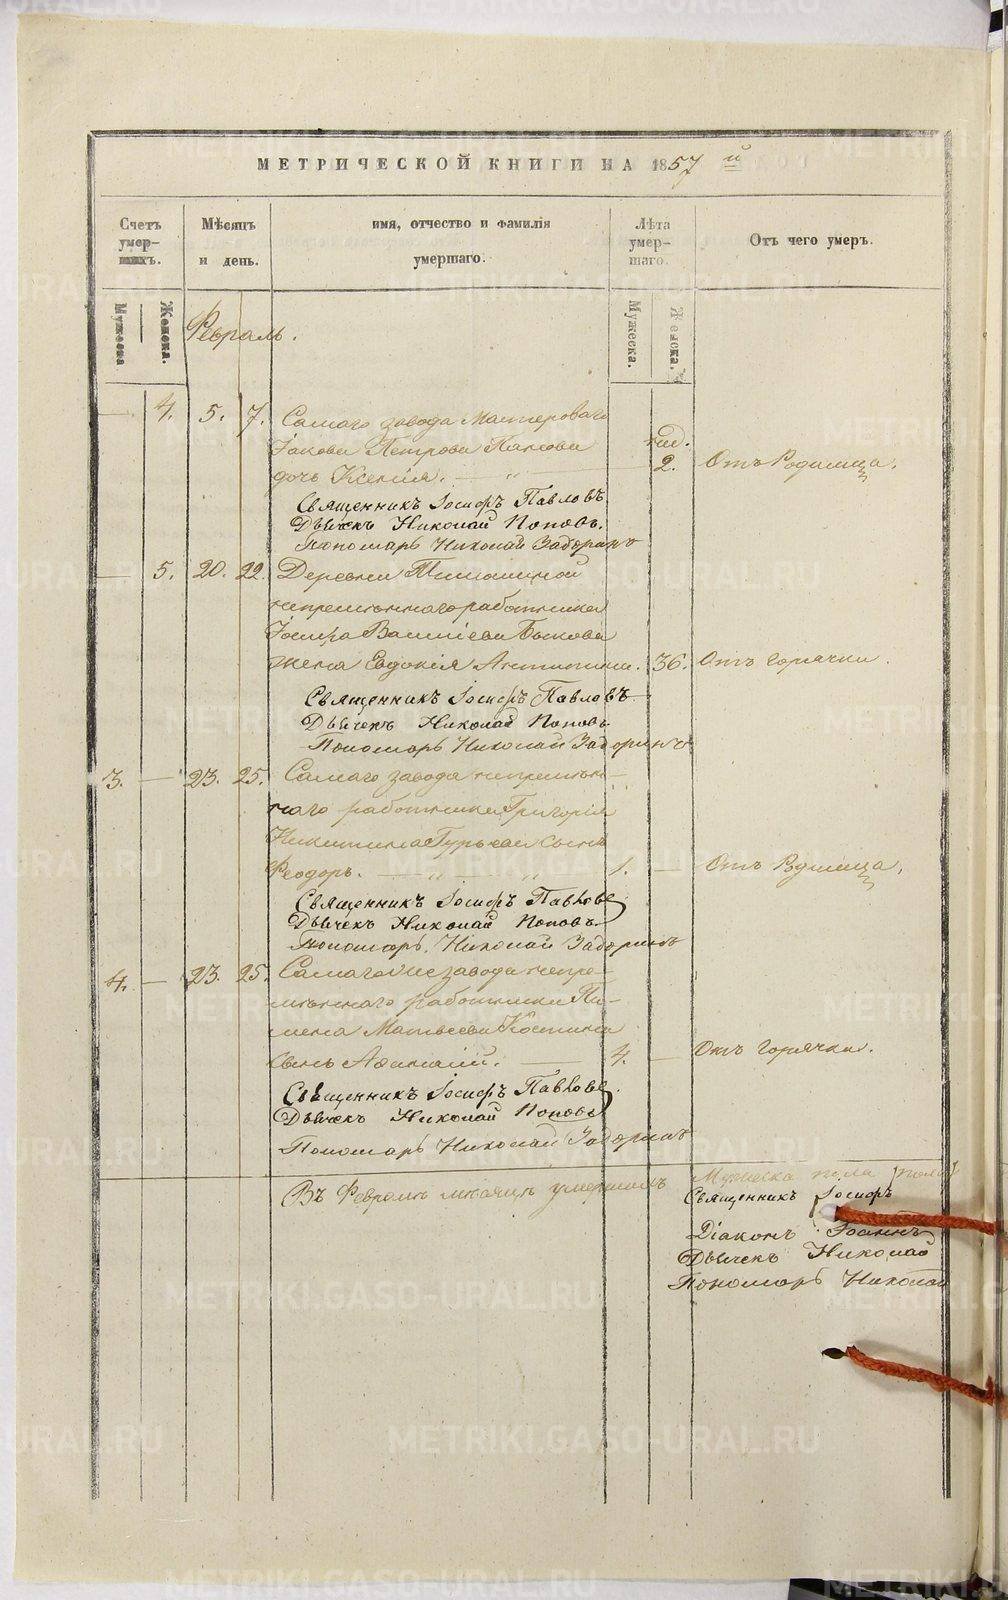 МЕТРИЧЕСКОЙ КНИГИ НА 1857 й
Счетъ умер-шихъ.
Мѣсяцъ и день.
имя, отчество и фамилія умершаго.
Лѣта умер-шаго.
Отъ чего умеръ.
Мужеска
Женска.
Февраль.
Мужеска.
Женска.
4. 5. 7. Самаго завода Мастероваго
Іакова Петрова
нед.
дочь Ксенія. 2. Отъ Родимца.
Священникъ Іосифъ Павловъ
Дьячекъ Николай Поповъ.
Пономарь Николай Задоринъ
5. 20. 22. Деревни
непремѣннаго работника
Іосифа Васильева Быкова
жена Евдокія Антипина. 36. Отъ Горячки.
Священникъ Іосифъ Павловъ
Дьячекъ Николай Поповъ
Пономарь Николай Задоринъ
3. 23. 25. Самаго завода непремѣн-
наго работника Григорія
Никитина Гурьева сынъ
Феодоръ. 1. Отъ Родимца.
Священникъ Іосифъ Павловъ
Дьячекъ Николай Поповъ
Пономарь Николай Задоринъ
4. 23. 25. Самаго же завода непре-
мѣннаго работника Пи-
мена Матвѣева Костина
сынъ Афанасій. 4. Отъ Горячки.
Священникъ Іосифъ Павловъ
Дьячекъ Николай Поповъ
Пономарь Николай Задоринъ
Въ Февралѣ мѣсяцѣ умершихъ Мужеска пола
Священникъ Іосифъ
Діаконъ Іоаннъ
Дьячекъ Николай
Пономарь Николай
METRIKI.GASO-URAL.RU